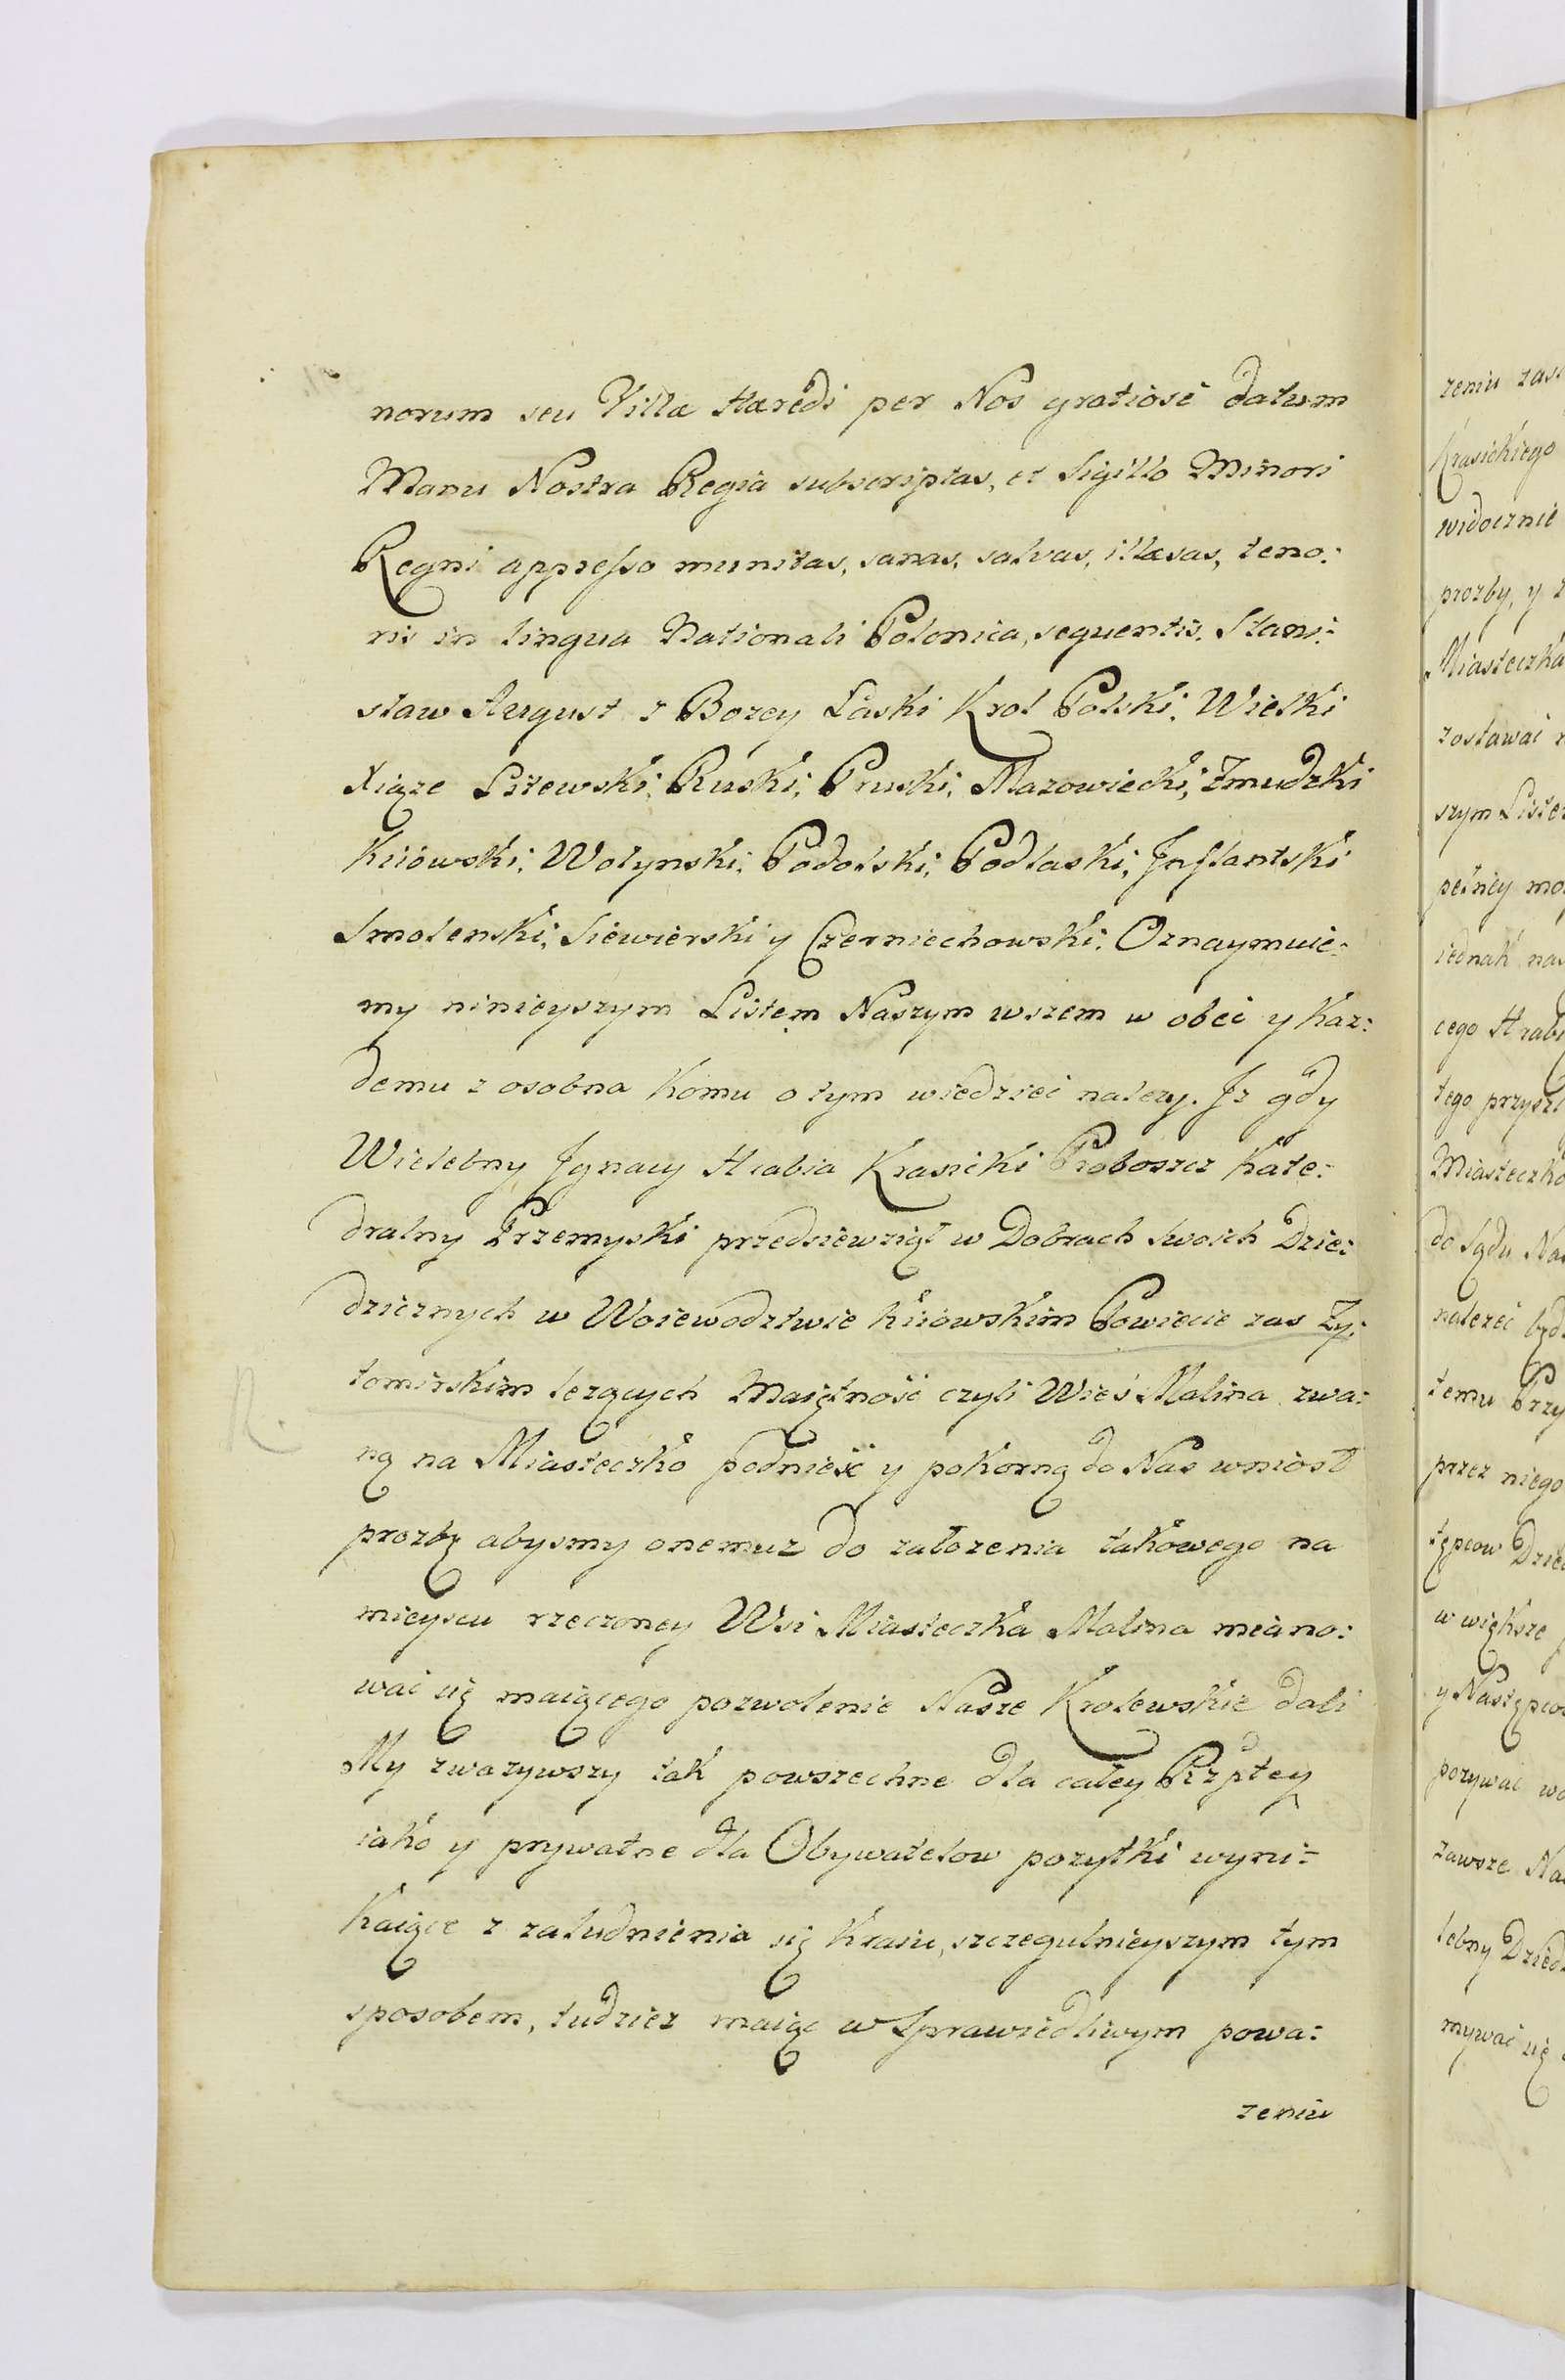 norum seu Villæ Hæredi per Nos gratiosè datum
Manu Nostra Regia subscriptas, et Sigillo Minori
Regni appresso munitas, sanas, salvas, illæsas, teno:
ris in lingua Nationali Polonica, sequentis. Stani:
sław August z Bozey Łaski Krol Polski, Wielki
Xiąze Litewski, Ruski, Pruski, Mazowiecki, Zmudzki
Kiiowski, Wołynski, Podolski, Podlaski, Inflantski
Smolenski, Siewierski y Czerniechowski. Oznaymuie:
my ninieyszym Listem Naszym wszem w obec y kaz:
demu z osobna komu o tym wiedzieć nalezy. Iz gdy
Wielebny Ignacy Hrabia Krasicki Proboszcz Kate:
dralny Przemyski przedsiewziął w Dobrach swoich Dzie:
dzicznych w Woiewodztwie Kiiowskim Powiecie zas Zy:
tomirskim lezących Maiętność czyli Wieś Malina zwa:
ną na Miasteczko podnieść y pokorną do Nas wniosł
prozbę abysmy onemuz do załozenia takowego na
mieyscu rzeczoney Wsi Miasteczka Malina miano:
wać się maiącego pozwolenie Nasze Krolewskie dali
My zwazywszy tak powszechne dla całey Rzptey
iako y prywatne dla Obywatelow pozytki wyni:
kaiące z zaludnienia się kraiu, szczegulnieyszym tym
sposobem, tudziez maiąc w sprawiedliwym powa:
zeniu
R.
zeniu
Krasickiego
widocznie
prozby, y
Miasteczka
zostawać
szym
pełney
iednak
cego
tego
Miasteczko
do Sądu
nalezeć
temu
przez niego
w większe
pozywać
zawsze
mywać się